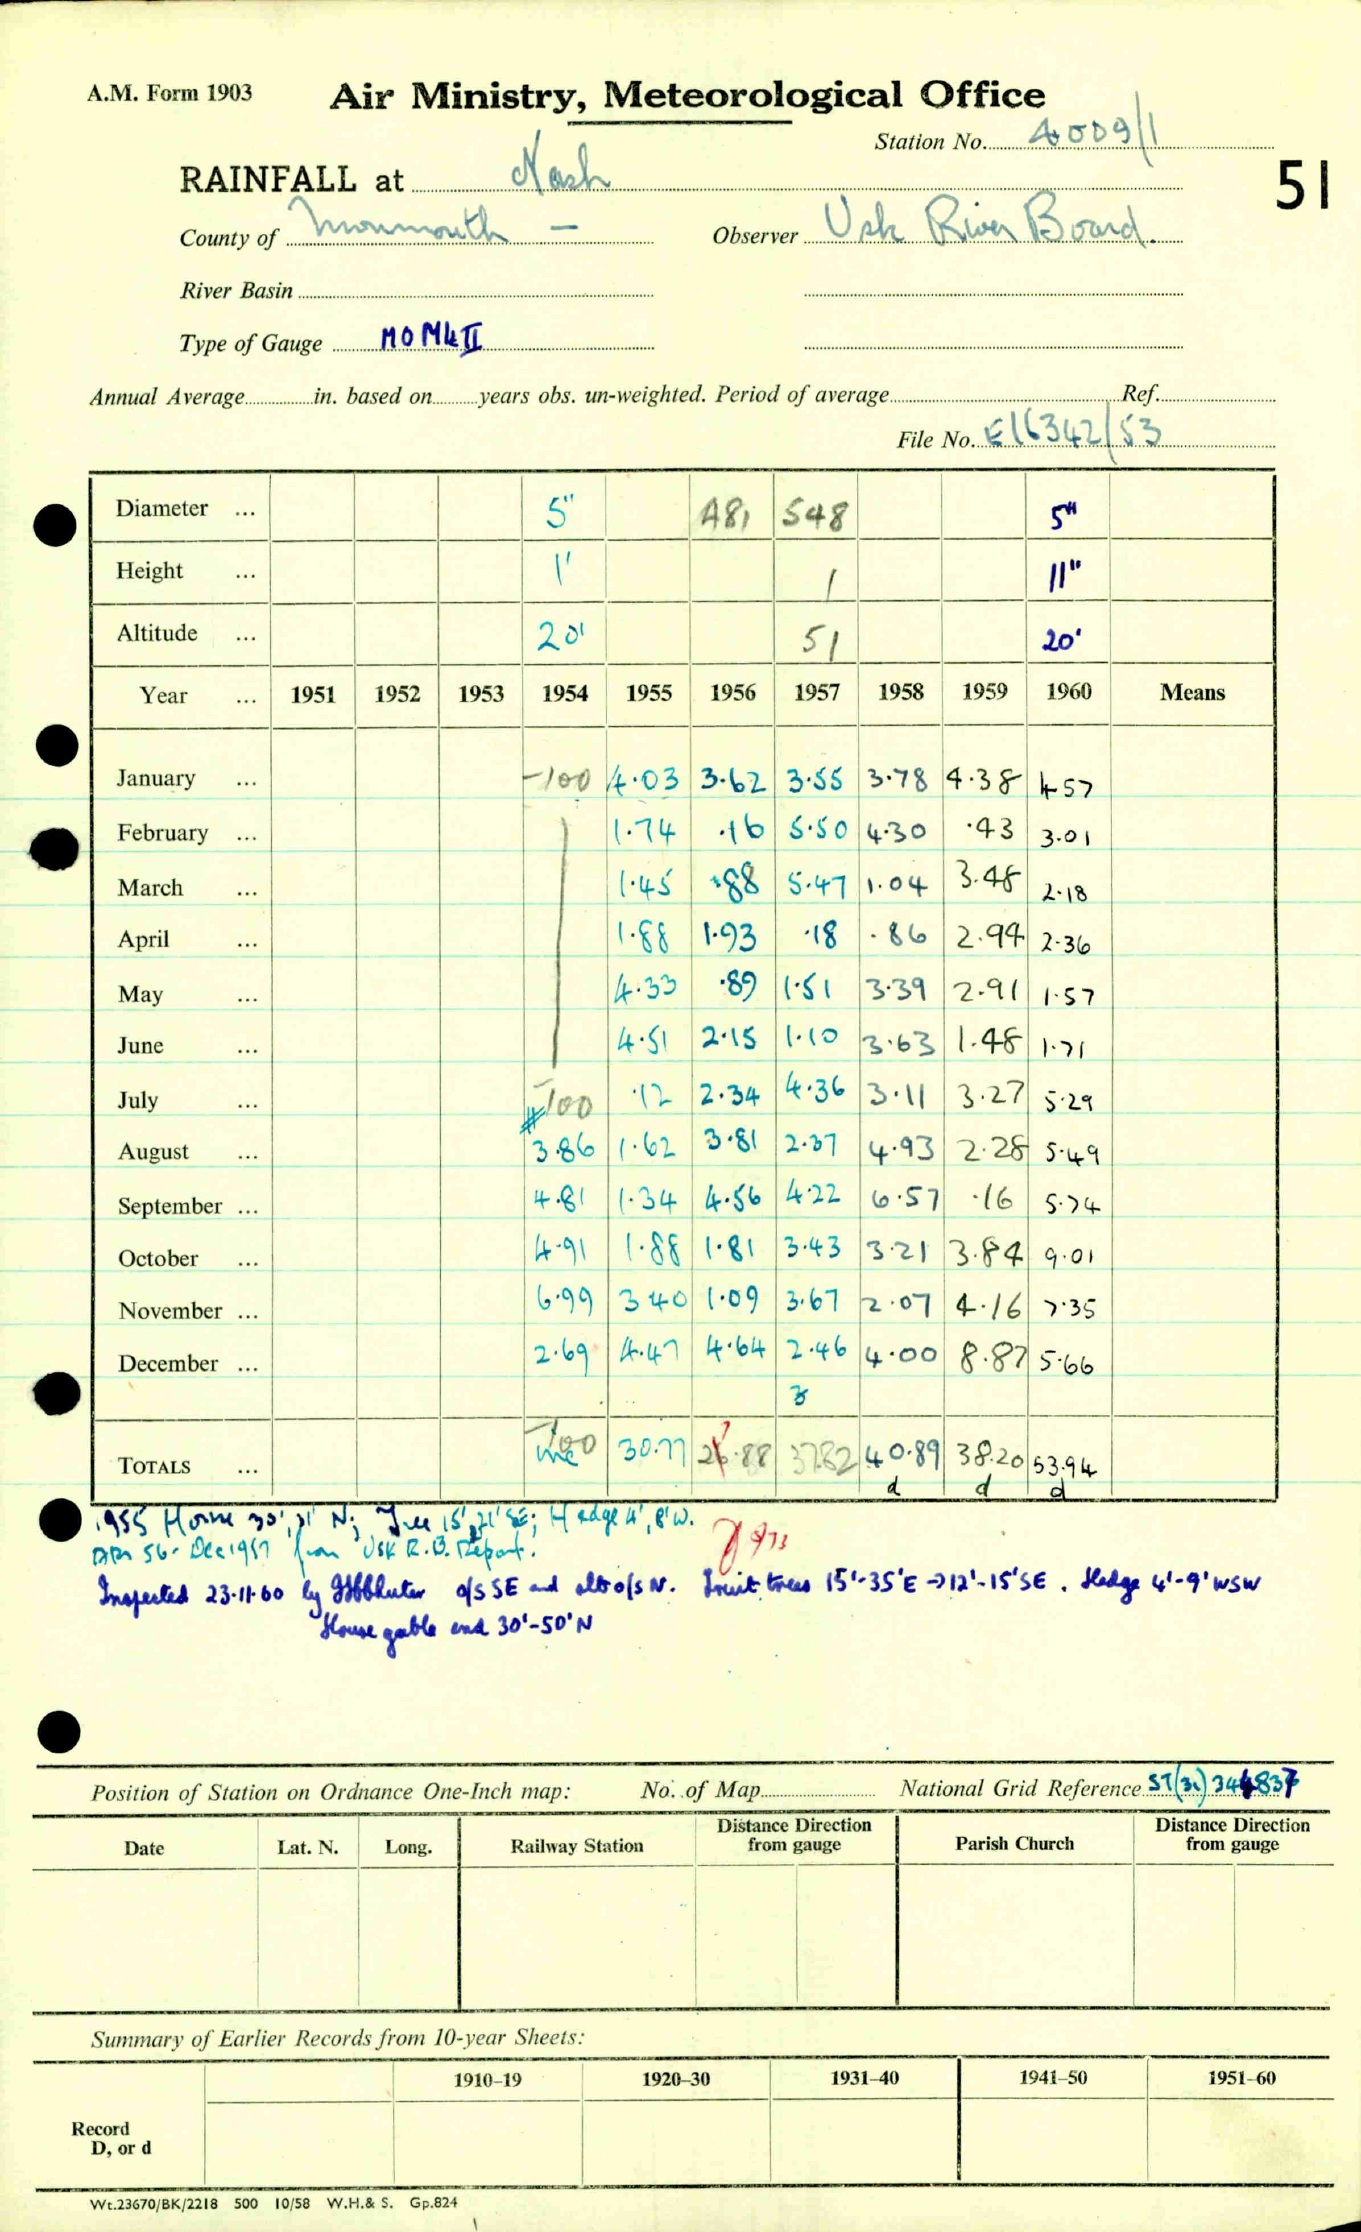 A.M. Form 1903
Air Ministry, Meteorological Office
Station No. 4009/1
51
RAINFALL at Nash
County of Monmouth – Observer Usk River Board.
River Basin
Type of Gauge MO Mk II
Annual Average in. based on years obs. un-weighted. Period of average Ref.
File No. E16342/53
Diameter ... 5" A81 548 5"
Height ... 1' 1 11"
Altitude ... 20' 51 20'
Year ... 1951 1952 1953 1954 1955 1956 1957 1958 1959 1960 Means
January ... -100 4.03 3.62 3.55 3.78 4.38 4.57
February ... 1.74 .16 5.50 4.30 .43 3.01
March ... 1.45 .88 5.47 1.04 3.48 2.18
April ... 1.88 1.93 .18 .86 2.94 2.36
May ... 4.33 .89 1.51 3.39 2.91 1.57
June ... 4.51 2.15 1.10 3.63 1.48 1.71
July ... -100 .12 2.34 4.36 3.11 3.27 5.29
August ... 3.86 1.62 3.81 2.37 4.93 2.28 5.49
September ... 4.81 1.34 4.56 4.22 6.57 .16 5.74
October ... 4.91 1.88 1.81 3.43 3.21 3.84 9.01
November ... 6.99 3 40 1.09 3.67 2.07 4.16 7.35
December ... 2.69 4.47 4.64 2.46 4.00 8.87 5.66
3
TOTALS ... -100 30.77 26.88 37.82 40.89 38.20 53.94
7
d d d
1955 House 30', 21' N; Tree 15', 21' SE; Hedge 4', 8' W.
Apr 56 - Dec 1957 from Usk R.B. Report.
Inspected 23.11.60 by o/s SE and alt o/s N. Fruit trees 15'-35'E → 12'-15'SE. Hedge 4'-9' WSW
House gable end 30'-50'N
Position of Station on Ordnance One-Inch map: No. of Map National Grid Reference ST(31) 344837
Date Lat. N. Long. Railway Station Distance Direction from gauge Parish Church Distance Direction from gauge
Summary of Earlier Records from 10-year Sheets:
1910–19 1920–30 1931–40 1941–50 1951–60
Record
D, or d
Wt.23670/BK/2218 500 10/58 W.H.& S. Gp.824